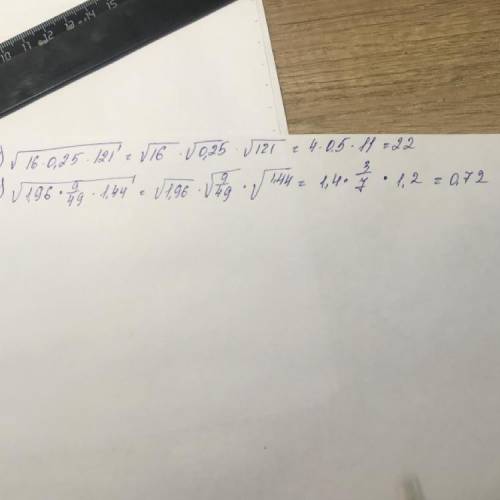 10 11 12 13 14 15
) √16·0,25·121 = √16 · √0,25 · √121 = 4·0.5·11=22
) √1,96·9/49·1.44 = √1,96 · √9/49 · √1.44 = 1,4·3/7·1,2 = 0,72